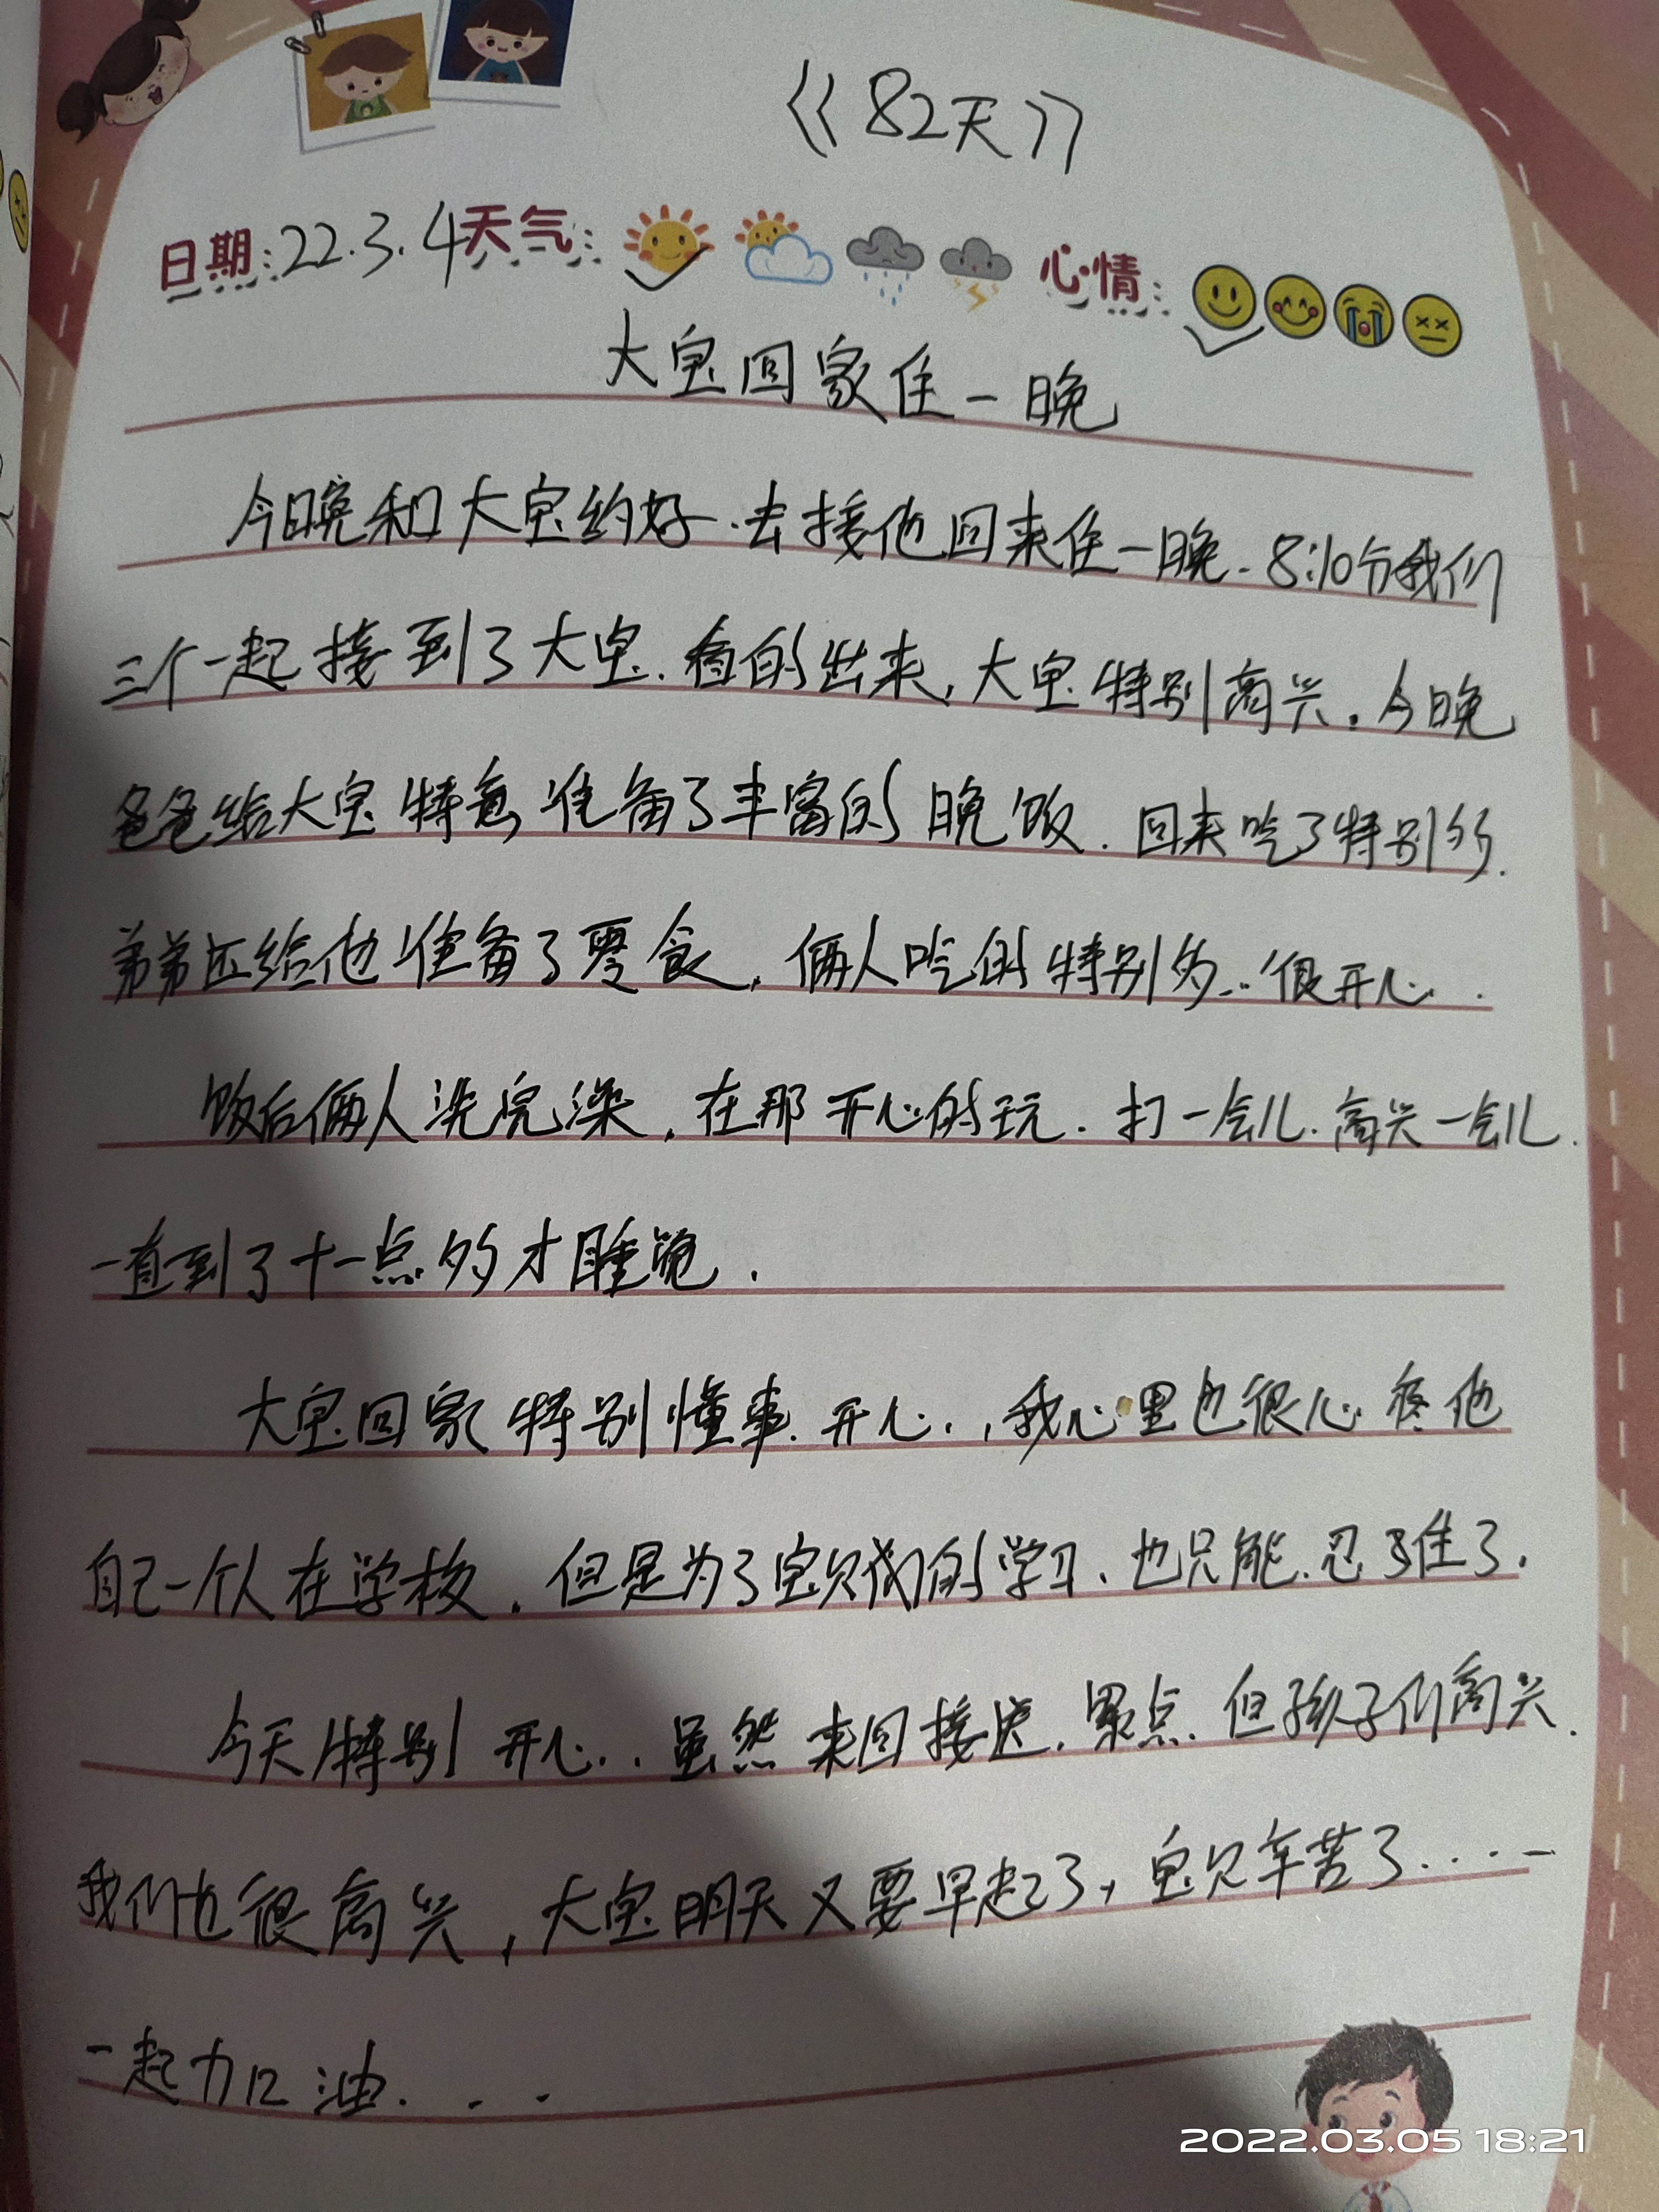 《82天》
日期:22.3.4天气: 心情:
大宝回家住一晚
今晚和大宝约好.去接他回来住一晚.8:10分我们
三个一起接到了大宝.看的出来,大宝特别高兴.今晚
爸爸给大宝特意准备了丰富的晚饭.回来吃了特别多.
弟弟还给他准备了零食,俩人吃的特别多..很开心..
饭后俩人洗完澡,在那开心的玩.打一会儿.高兴一会儿.
一直到了十一点多才睡觉.
大宝回家特别懂事.开心..,我心里也很心疼他
自己一个人在学校.但是为了宝贝们的学习.也只能.忍住了.
今天特别开心..虽然来回接送.累点.但孩子们高兴.
我们也很高兴,大宝明天又要早起了,宝贝辛苦了.....
一起加油...
2022.03.05 18:21